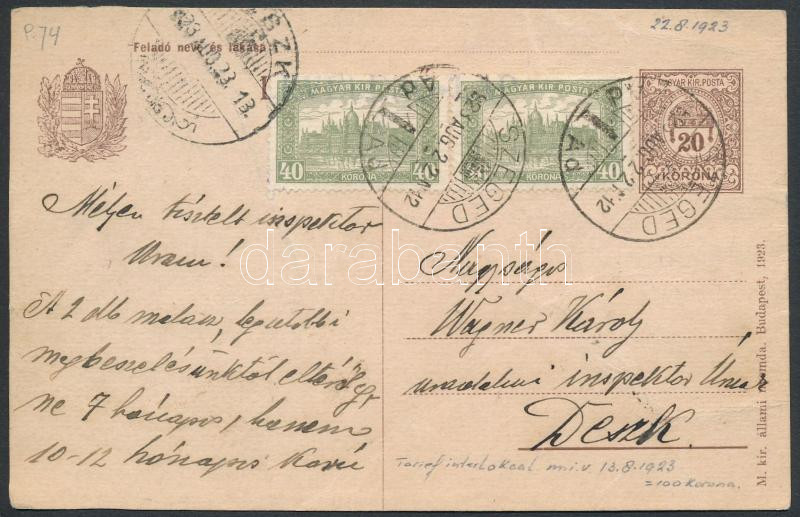 P.74
22.8.1923
Feladó neve és lakása
DESZK
923 AUG. 23. 13.
MAGYAR KIR. POSTA
40 40
KORONA
MAGYAR KIR. POSTA
40
KORONA
SZEGED
923 AUG 22 N 12
SZEGED
AUG 22 N 12
MAGYAR KIR. POSTA
20
KORONA
Mélyen tisztelt inspektor
Uram!
A 2 db malacz, legutóbbi
megbeszelésünktöl eltérőleg
ne 7 hónapos, hanem
10-12 hónapos
Nagyságos
Wagner Károly
uradalmi inspektor Urnak
Deszk.
Tarief interlokaal m.i.v. 13.8.1923
= 100 korona.
M. kir. állami nyomda. Budapest, 1923.
darabanth